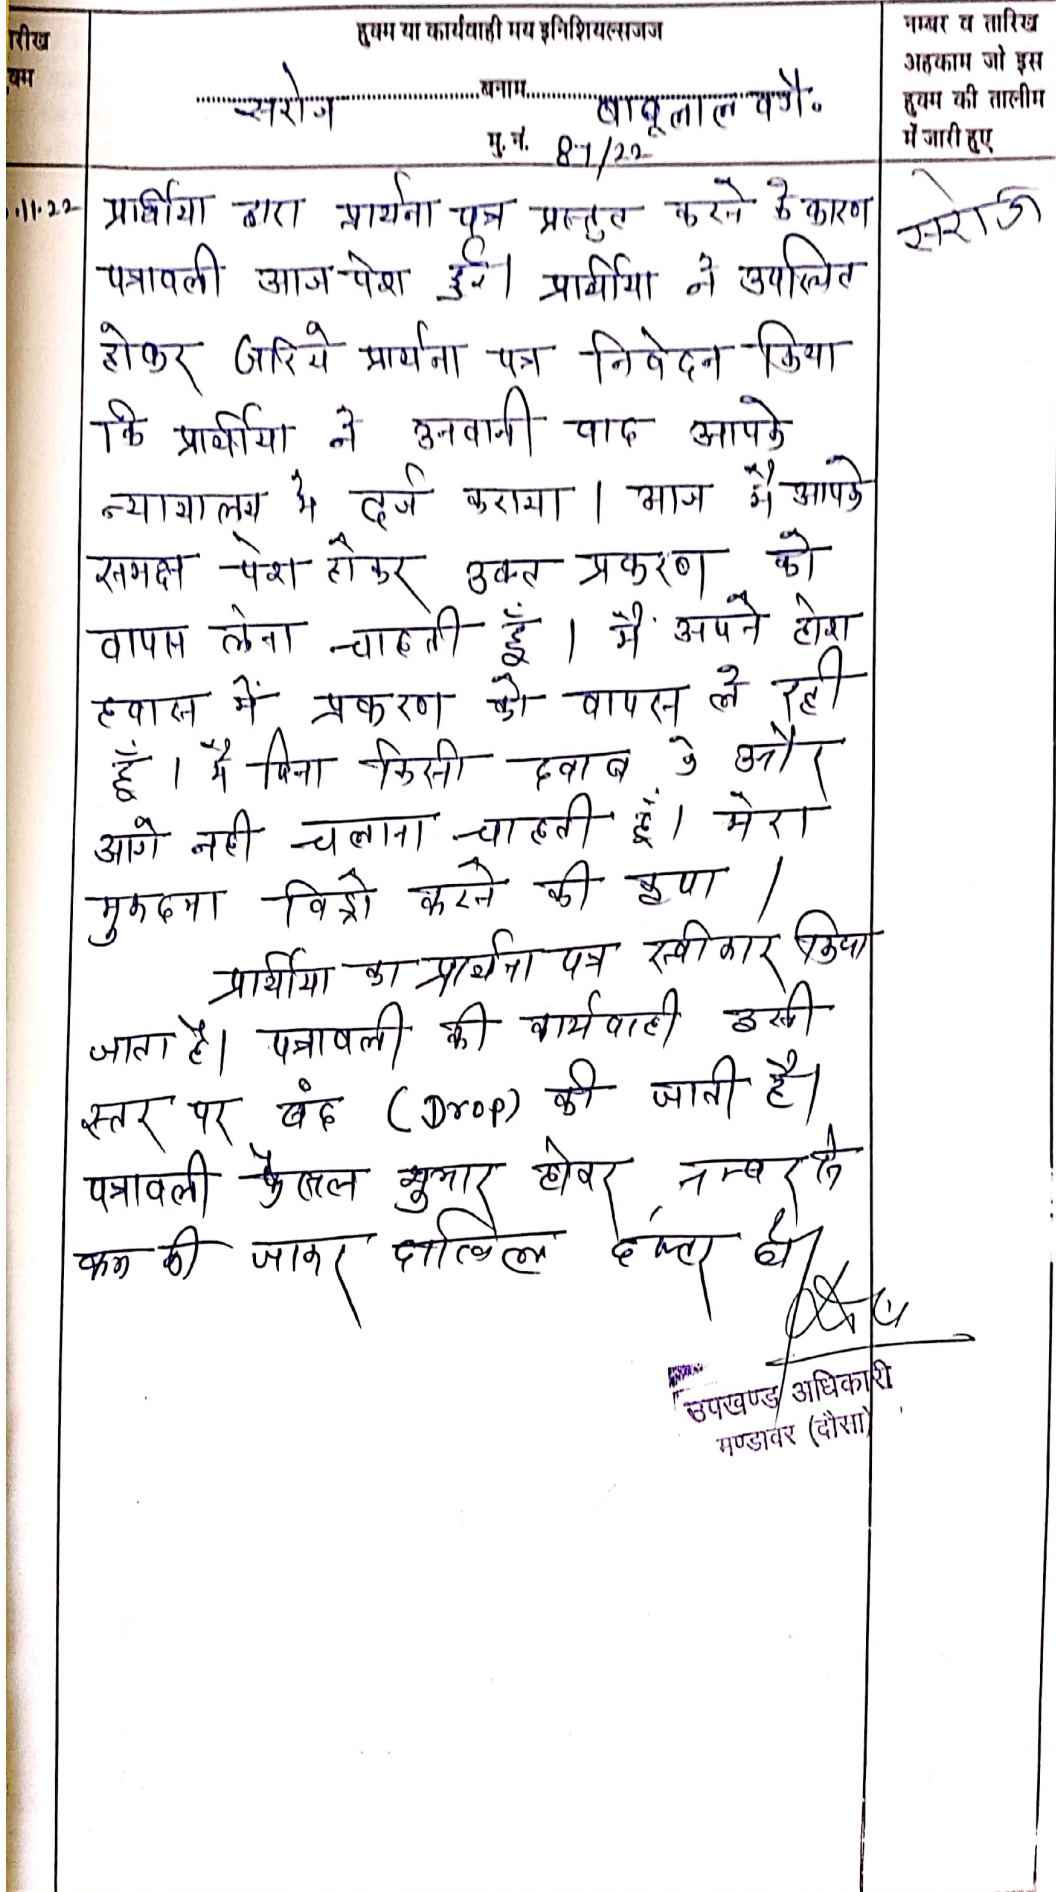 रीख
हुक्म या कार्यवाही मय इनिशियल्सजज
नम्बर व तारिख
अहकाम जो इस
हुक्म की तालीम
में जारी हुए
सरोज बनाम बाबूलाल वगै॰
मु.नं. 87/22
.11.22 प्रार्थीया द्वारा प्रार्थना पत्र प्रस्तुत करने के कारण
सरोज
पत्रावली आज पेश हुई। प्रार्थीया ने उपस्थित
होकर जरिये प्रार्थना पत्र निवेदन किया
कि प्रार्थीया ने उनवानी वाद आपके
न्यायालय मे दर्ज कराया । आज मै आपके
समक्ष पेश होकर उक्त प्रकरण को
वापस लेना चाहती हूँ । मै अपने होश
हवास में प्रकरण को वापस ले रही
हूँ । मै बिना किसी दवाब के और
आगे नही चलाना चाहती हूं। मेरा
मुकदमा विड्रो करने की कृपा ।
प्रार्थीया का प्रार्थना पत्र स्वीकार किया
जाता है। पत्रावली की कार्यवाही इसी
स्तर पर बंद (Drop) की जाती है।
पत्रावली फैसल शुमार होकर नम्बर से
कम की जाकर दाखिल दफ्तर हो।
उपखण्ड अधिकारी
मण्डावर (दौसा)